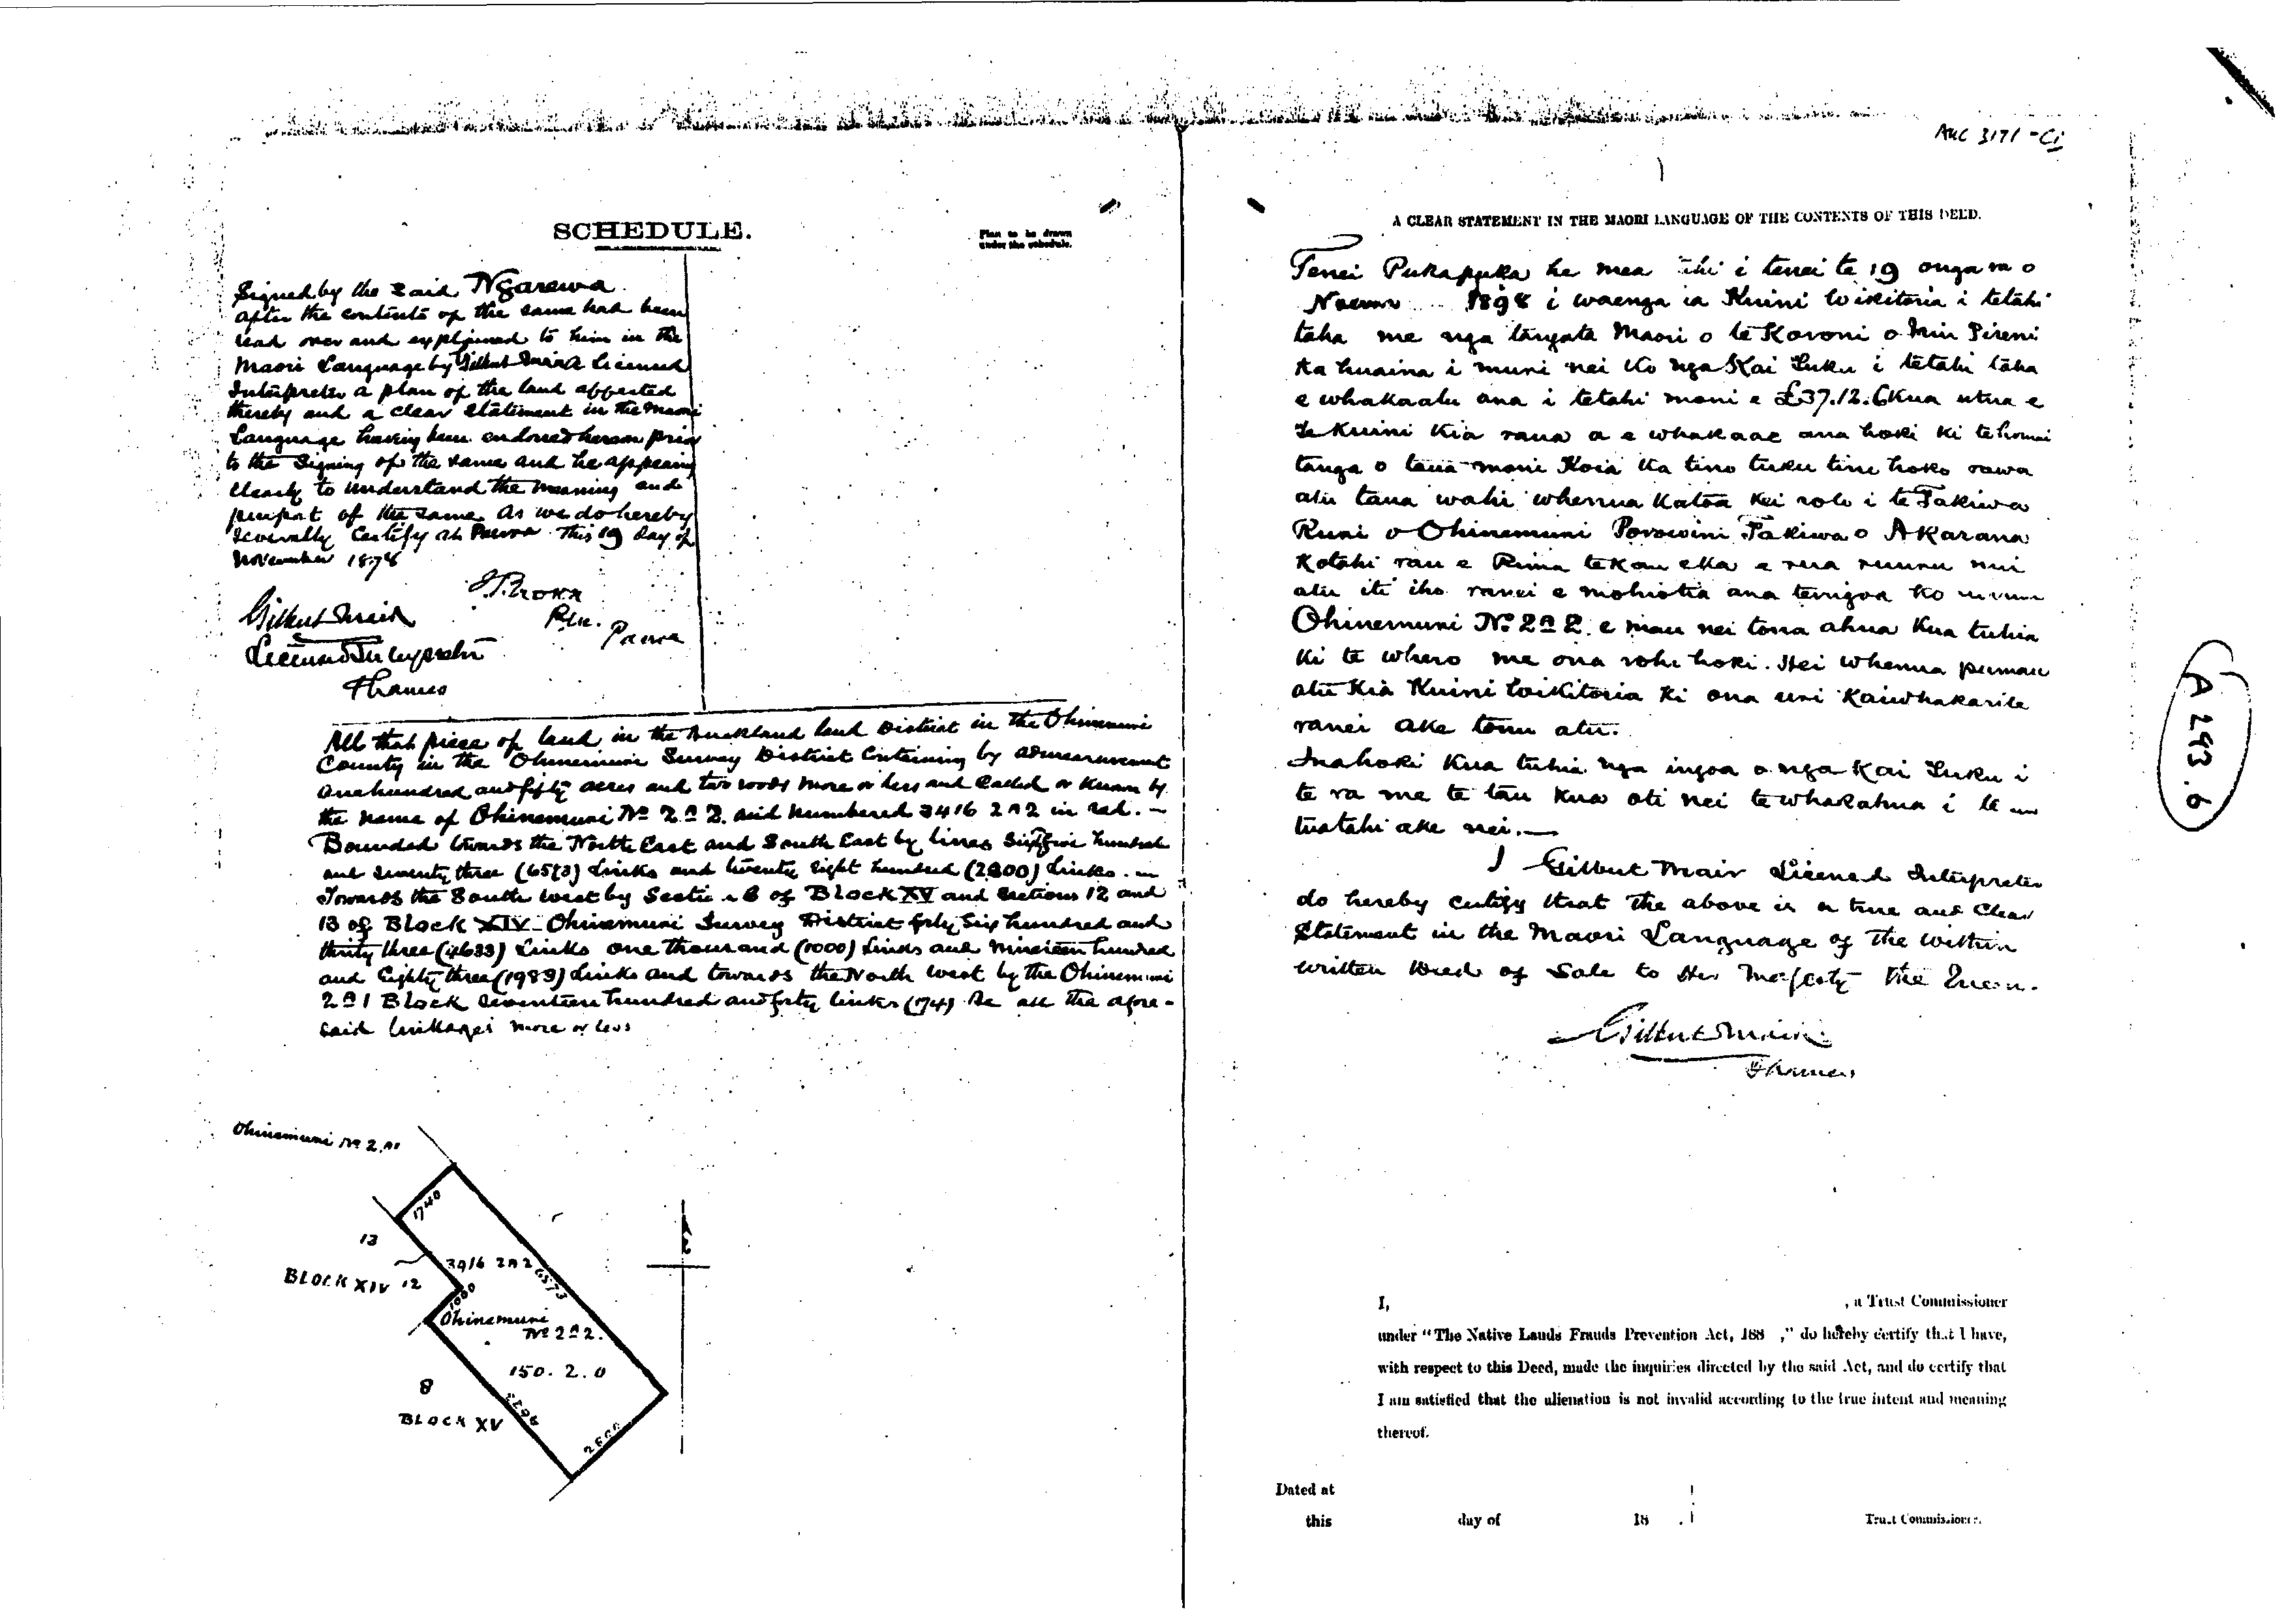 AKC 3171 -Ci
SCHEDULE.
Plan to be drawn
under the schedule.
Signed by the said Ngarewa
after the contents of the same had been
read over and explained to him in the
Maori Language by Gilbert Mair a Licensed
Interpreter a plan of the land affected
thereby and a clear statement in the Maori
Language having been endorsed hereon prior
to the signing of the same and he appearing
clearly to understand the meaning and
purport of the same. As we do hereby
severally certify at Paeroa This 19 day of
November 1898
Gilbert Mair
Licensed Interpreter
Thames
Paeroa
All that piece of land in the Auckland land District in the Ohinemuri
County in the Ohinemuri Survey District Containing by admeasurement
One hundred and fifty acres and two roods more or less and Called or Known by
the name of Ohinemuri No 2A2. and numbered 3416 2A2 in red. —
Bounded towards the North East and South East by lines Sixty five hundred
and seventy three (6573) Links and twenty eight hundred (2800) Links.
Towards the South west by Section 8 of Block XV and Sections 12 and
13 of Block XIV Ohinemuri Survey District forty six hundred and
thirty three (4633) Links one thousand (1000) Links and Nineteen hundred
and Eighty three (1983) Links and towards the North west by the Ohinemuri
2A1 Block Seventeen hundred and forty links (1740) Be all the afore-
said linkages more or less
Ohinemuri No 2A1
1740
13
3416 2A2
6573
BLOCK XIV 12
1000
Ohinemuri
No 2A2.
150. 2. 0
8
BLOCK XV
4633
2800
A CLEAR STATEMENT IN THE MAORI LANGUAGE OF THE CONTENTS OF THIS DEED.
Tenei Pukapuka he mea tuhi i tenei te 19 o nga ra o
Noema 1898 i waenga ia Kuini Wikitoria i tetahi
taha me nga tangata Maori o te Koroni o Niu Tireni
ka huaina i muri nei ko nga Kai Tuku i tetahi taha
e whakaatu ana i tetahi moni e £37.12.6 Kua utua e
te Kuini Kia raua a e whakaae ana hoki ki te homai
tanga o taua moni Koia Ka tino tuku tinu hoko rawa
atu taua wahi whenua Katoa Kei roto i te Takiwa
Ruri o Ohinemuri Porowini Takiwa o Akarana
Kotahi rau e Rima tekau eka e rua ruuru nui
atu iti iho ranei e mohiotia ana te ingoa ko
Ohinemuri No 2A2. e mau nei tona ahua Kua tuhia
ki te whero me ona rohe hoki. Hei whenua pumau
atu Kia Kuini Wikitoria ki ona uri Kaiwhakarite
ranei ake tonu atu.
Inahoki Kua tuhia nga ingoa o nga Kai Tuku i
te ra me te tau Kua oti nei te whakahua i te
tuatahi ake nei.—
I Gilbert Mair Licensed Interpreter
do hereby certify that the above is a true and clear
Statement in the Maori Language of the within
written Deed of Sale to Her Majesty the Queen.
Gilbert Mair
Thames
I, , a Trust Commissioner
under "The Native Lands Frauds Prevention Act, 188 ," do hereby certify that I have,
with respect to this Deed, made the inquiries directed by the said Act, and do certify that
I am satisfied that the alienation is not invalid according to the true intent and meaning
thereof.
Dated at
this day of 18 . Trust Commissioner.
A 293.6